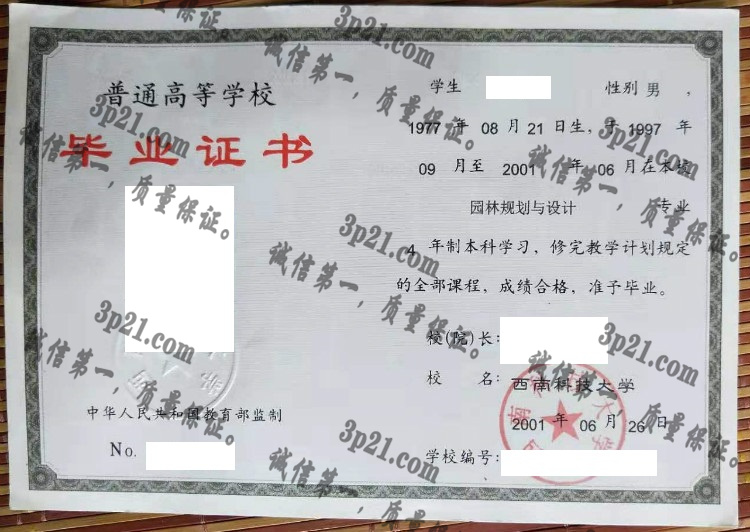 普通高等学校
毕业证书
中华人民共和国教育部监制
No.
学生 性别 男 ，
1977 年 08 月 21 日生，于 1997 年
09 月至 2001 年 06 月在本校
园林规划与设计 专业
4 年制本科学习，修完教学计划规定
的全部课程，成绩合格，准予毕业。
校(院)长：
校 名：西南科技大学
2001 年 06 月 26 日
学校编号：
3p21.com
诚信第一，质量保证。
3p21.com
诚信第一，质量保证。
3p21.com
诚信第一，质量保证。
3p21.com
诚信第一，质量保证。
3p21.com
诚信第一，质量保证。
3p21.com
诚信第一，质量保证。
3p21.com
诚信第一，质量保证。